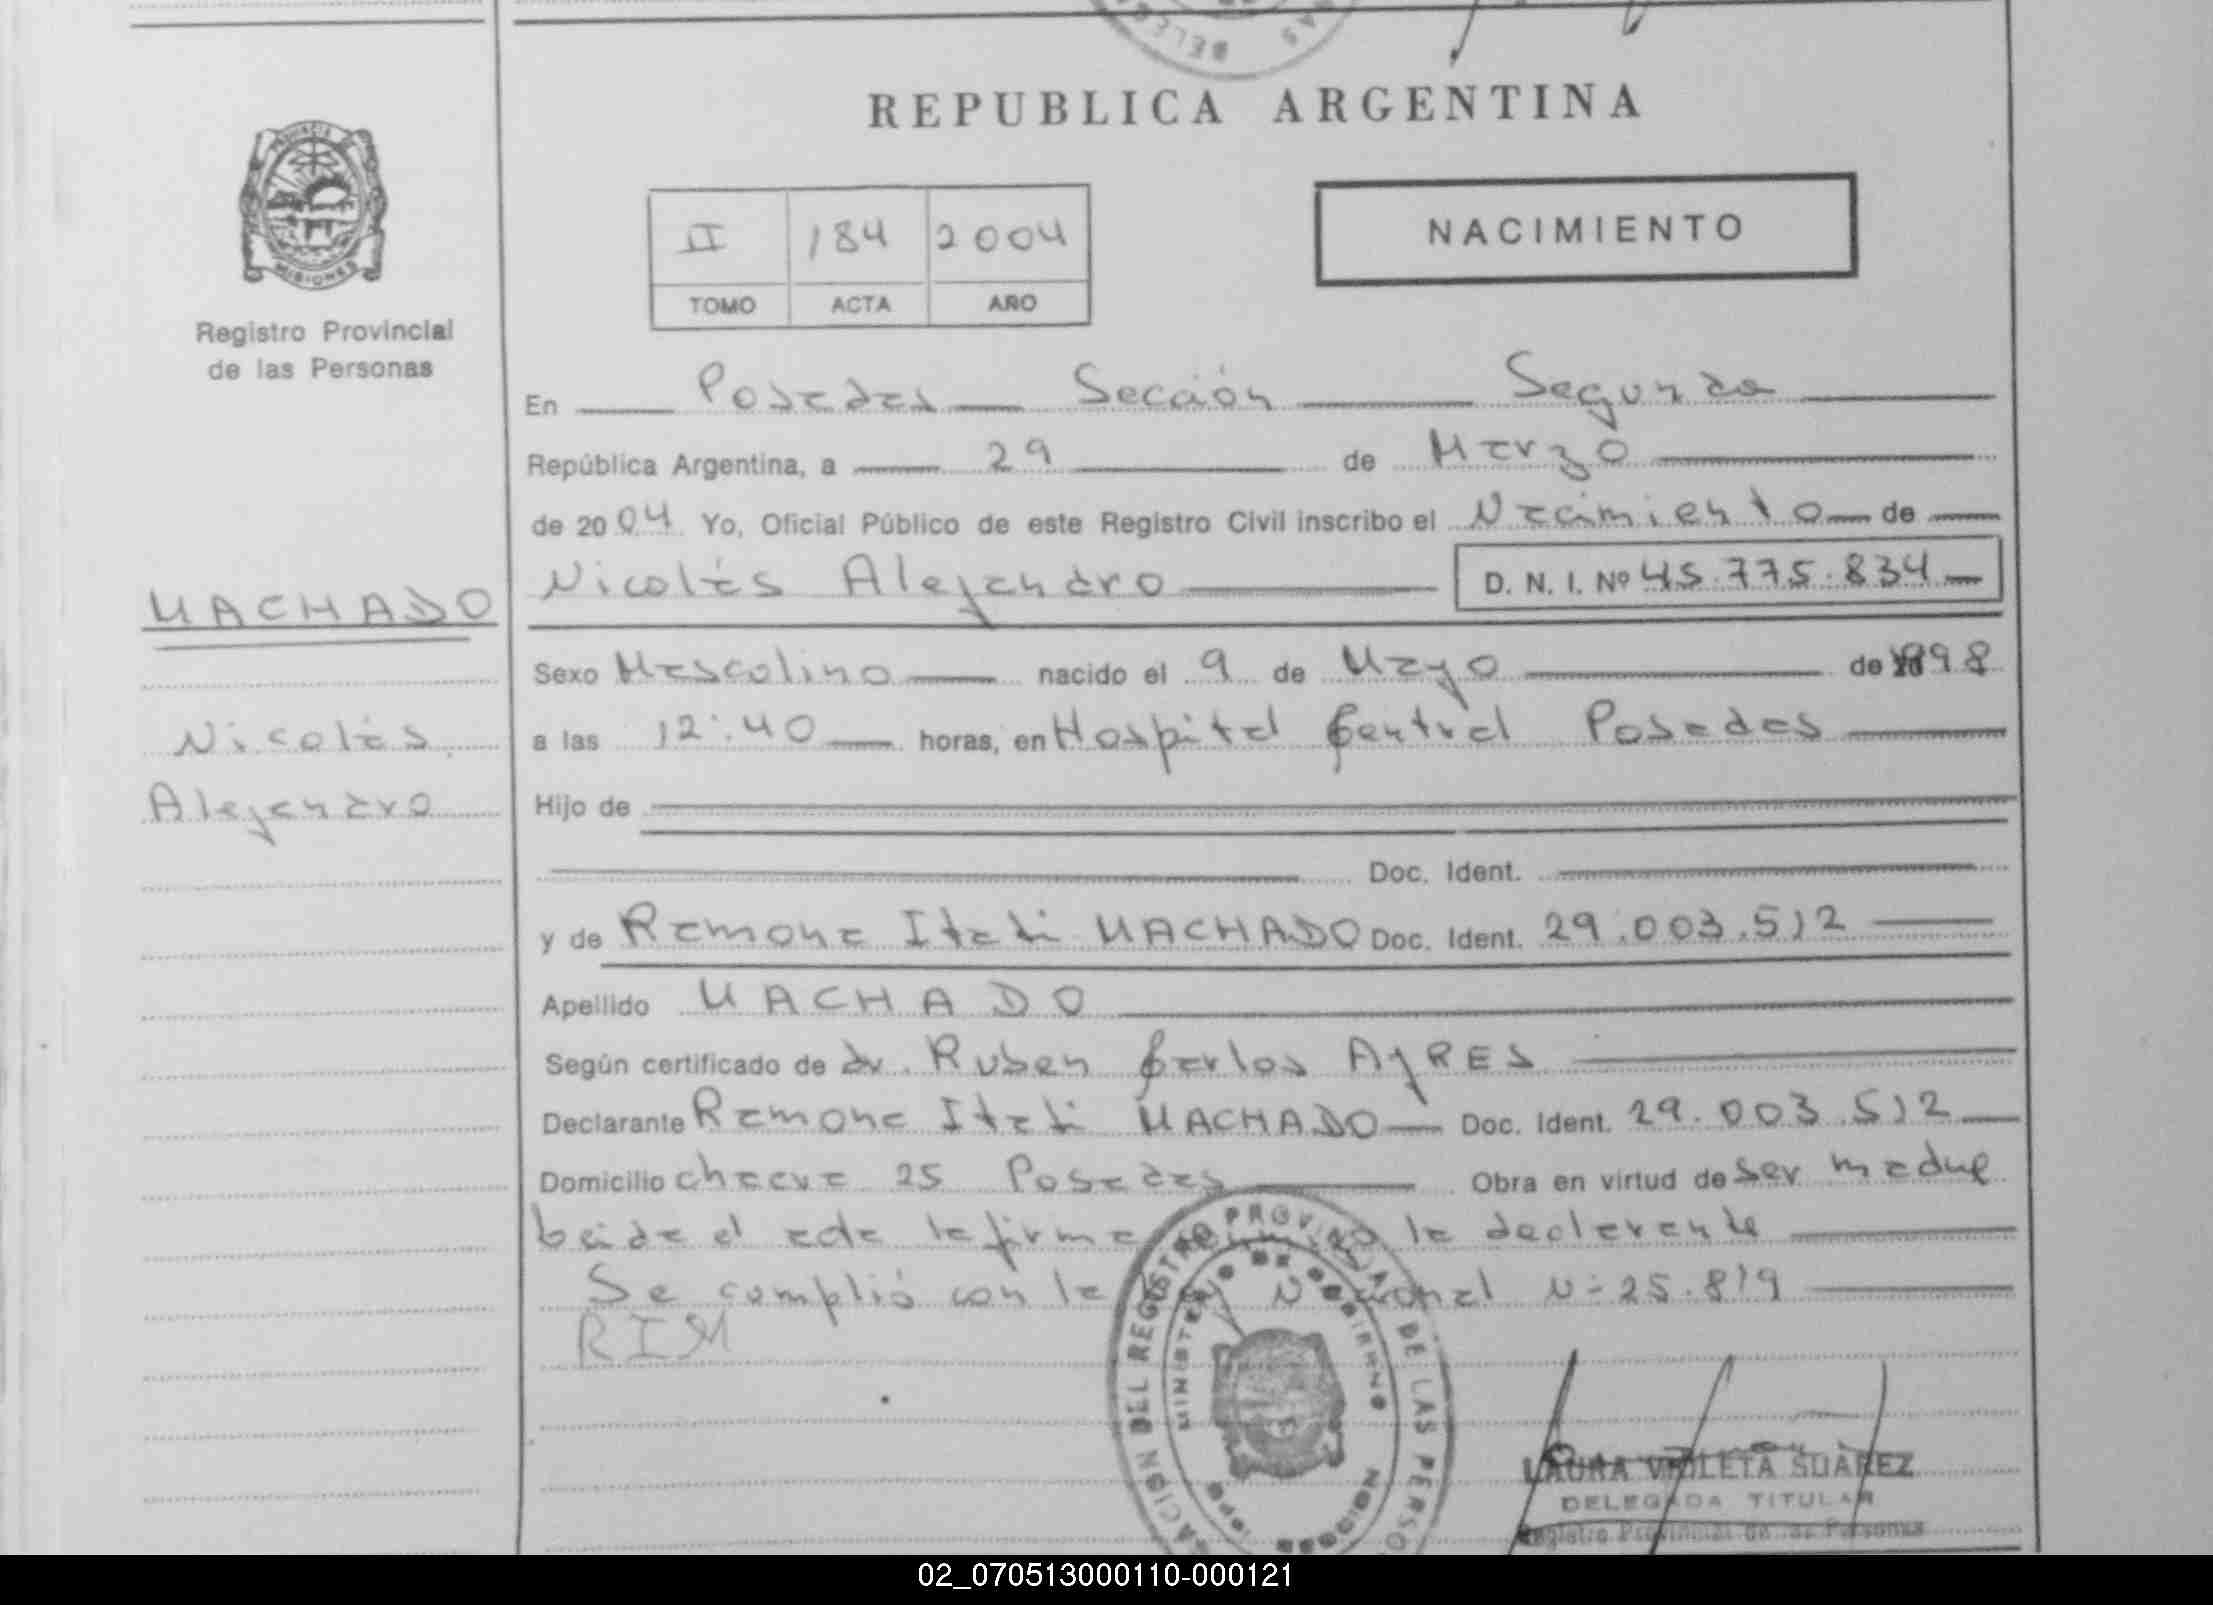 BELE
REPUBLICA ARGENTINA
PROVINCIA
MISIONES
Registro Provincial
de las Personas
II 184 2004
TOMO ACTA AÑO
NACIMIENTO
En Posadas Sección Segunda
República Argentina, a 29 de Marzo
de 2004 Yo, Oficial Público de este Registro Civil inscribo el Nacimiento de
MACHADO
Nicolás Alejandro D. N. I. Nº 45.775.834
Sexo Masculino nacido el 9 de Mayo de 1998
Nicolás
a las 12:40 horas, en Hospital Central Posadas
Alejandro
Hijo de
Doc. Ident.
y de Ramona Itati MACHADO Doc. Ident. 29.003.512
Apellido MACHADO
Según certificado de dr. Ruben Carlos AyRES
Declarante Ramona Itati MACHADO Doc. Ident. 29.003.512
Domicilio chacra 25 Posadas Obra en virtud de ser madre
Leida el acta la firma la declarante
Se cumplió con la Ley Nacional N- 25.819
RIM
REGISTRO PROVINCIAL DE LAS PERSO
MINISTERIO DE GOBIERNO
MISIONES
LAURA VIOLETA SUAREZ
DELEGADA TITULAR
Registro Provincial de las Personas
02_070513000110-000121